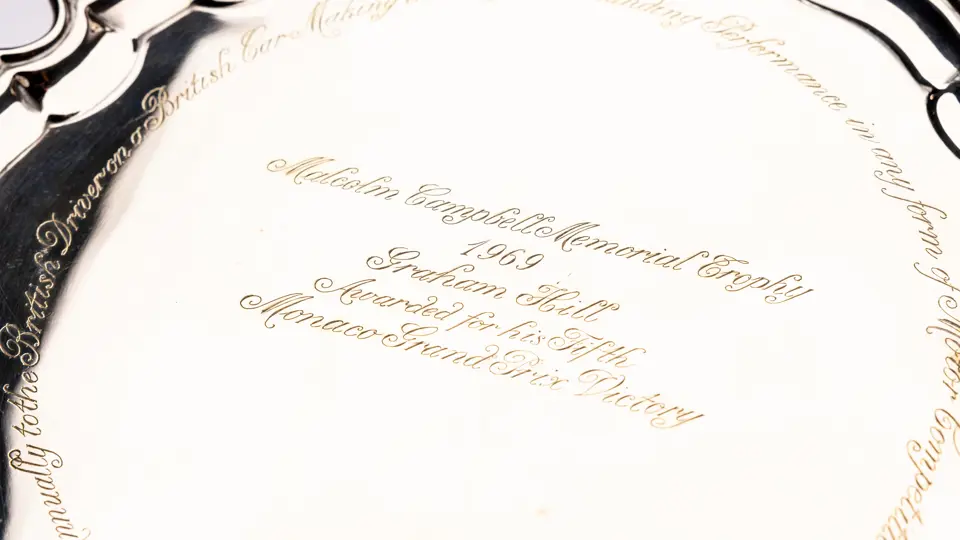 Annually to the British Driver on a British Car Making
Outstanding Performance in any form of Motor Competition
Malcolm Campbell Memorial Trophy
1969
Graham Hill
Awarded for his Fifth
Monaco Grand Prix Victory